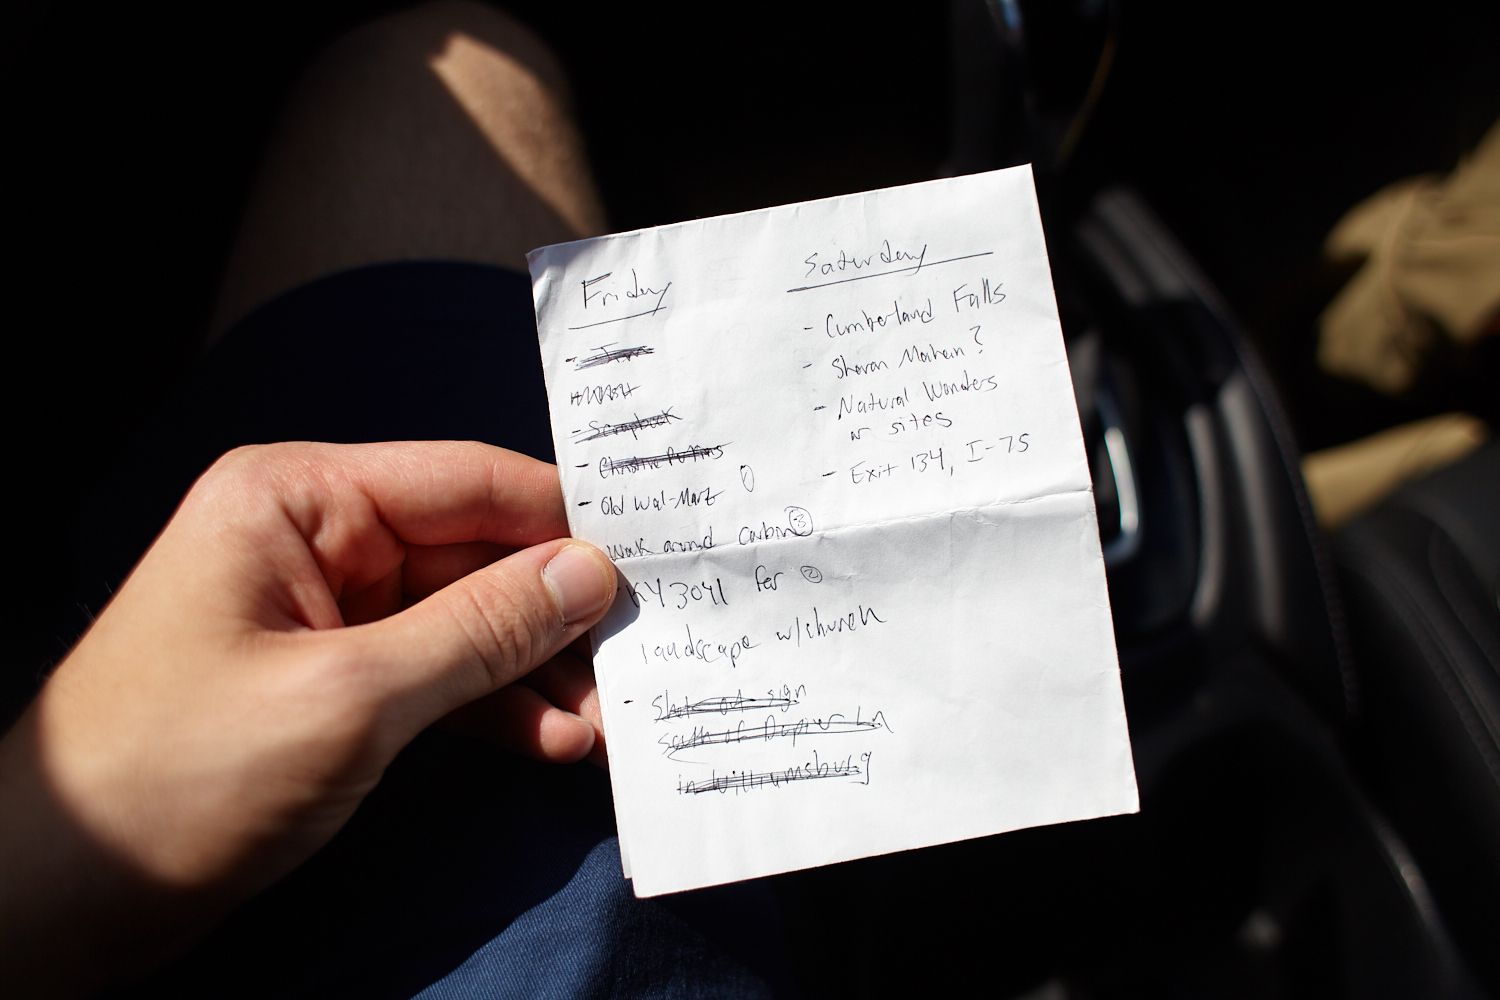 Friday
- Scrapbook
-
- Old Wal-Mart 1
Walk around Corbin 3
KY 3041 for 2
landscape w/church
- Shot of sign
south of Dupier Ln
in Williamsburg
Saturday
- Cumberland Falls
- Sharon ?
- Natural Wonders
or sites
- Exit 134, I-75